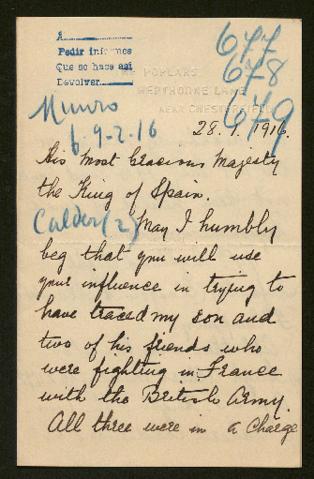 A
Pedir informes
Que se hace así
Devolver
677
678
679
THE POPLARS
HEPTHORNE LANE
NEAR CHESTERFIELD
Munro
6.9-2.16
28.1.1916.
His Most Gracious Majesty
the King of Spain.
Calder(2) May I humbly
beg that you will use
your influence in trying to
have traced my son and
two of his friends who
were fighting in France
with the British Army.
All three were in a Charge